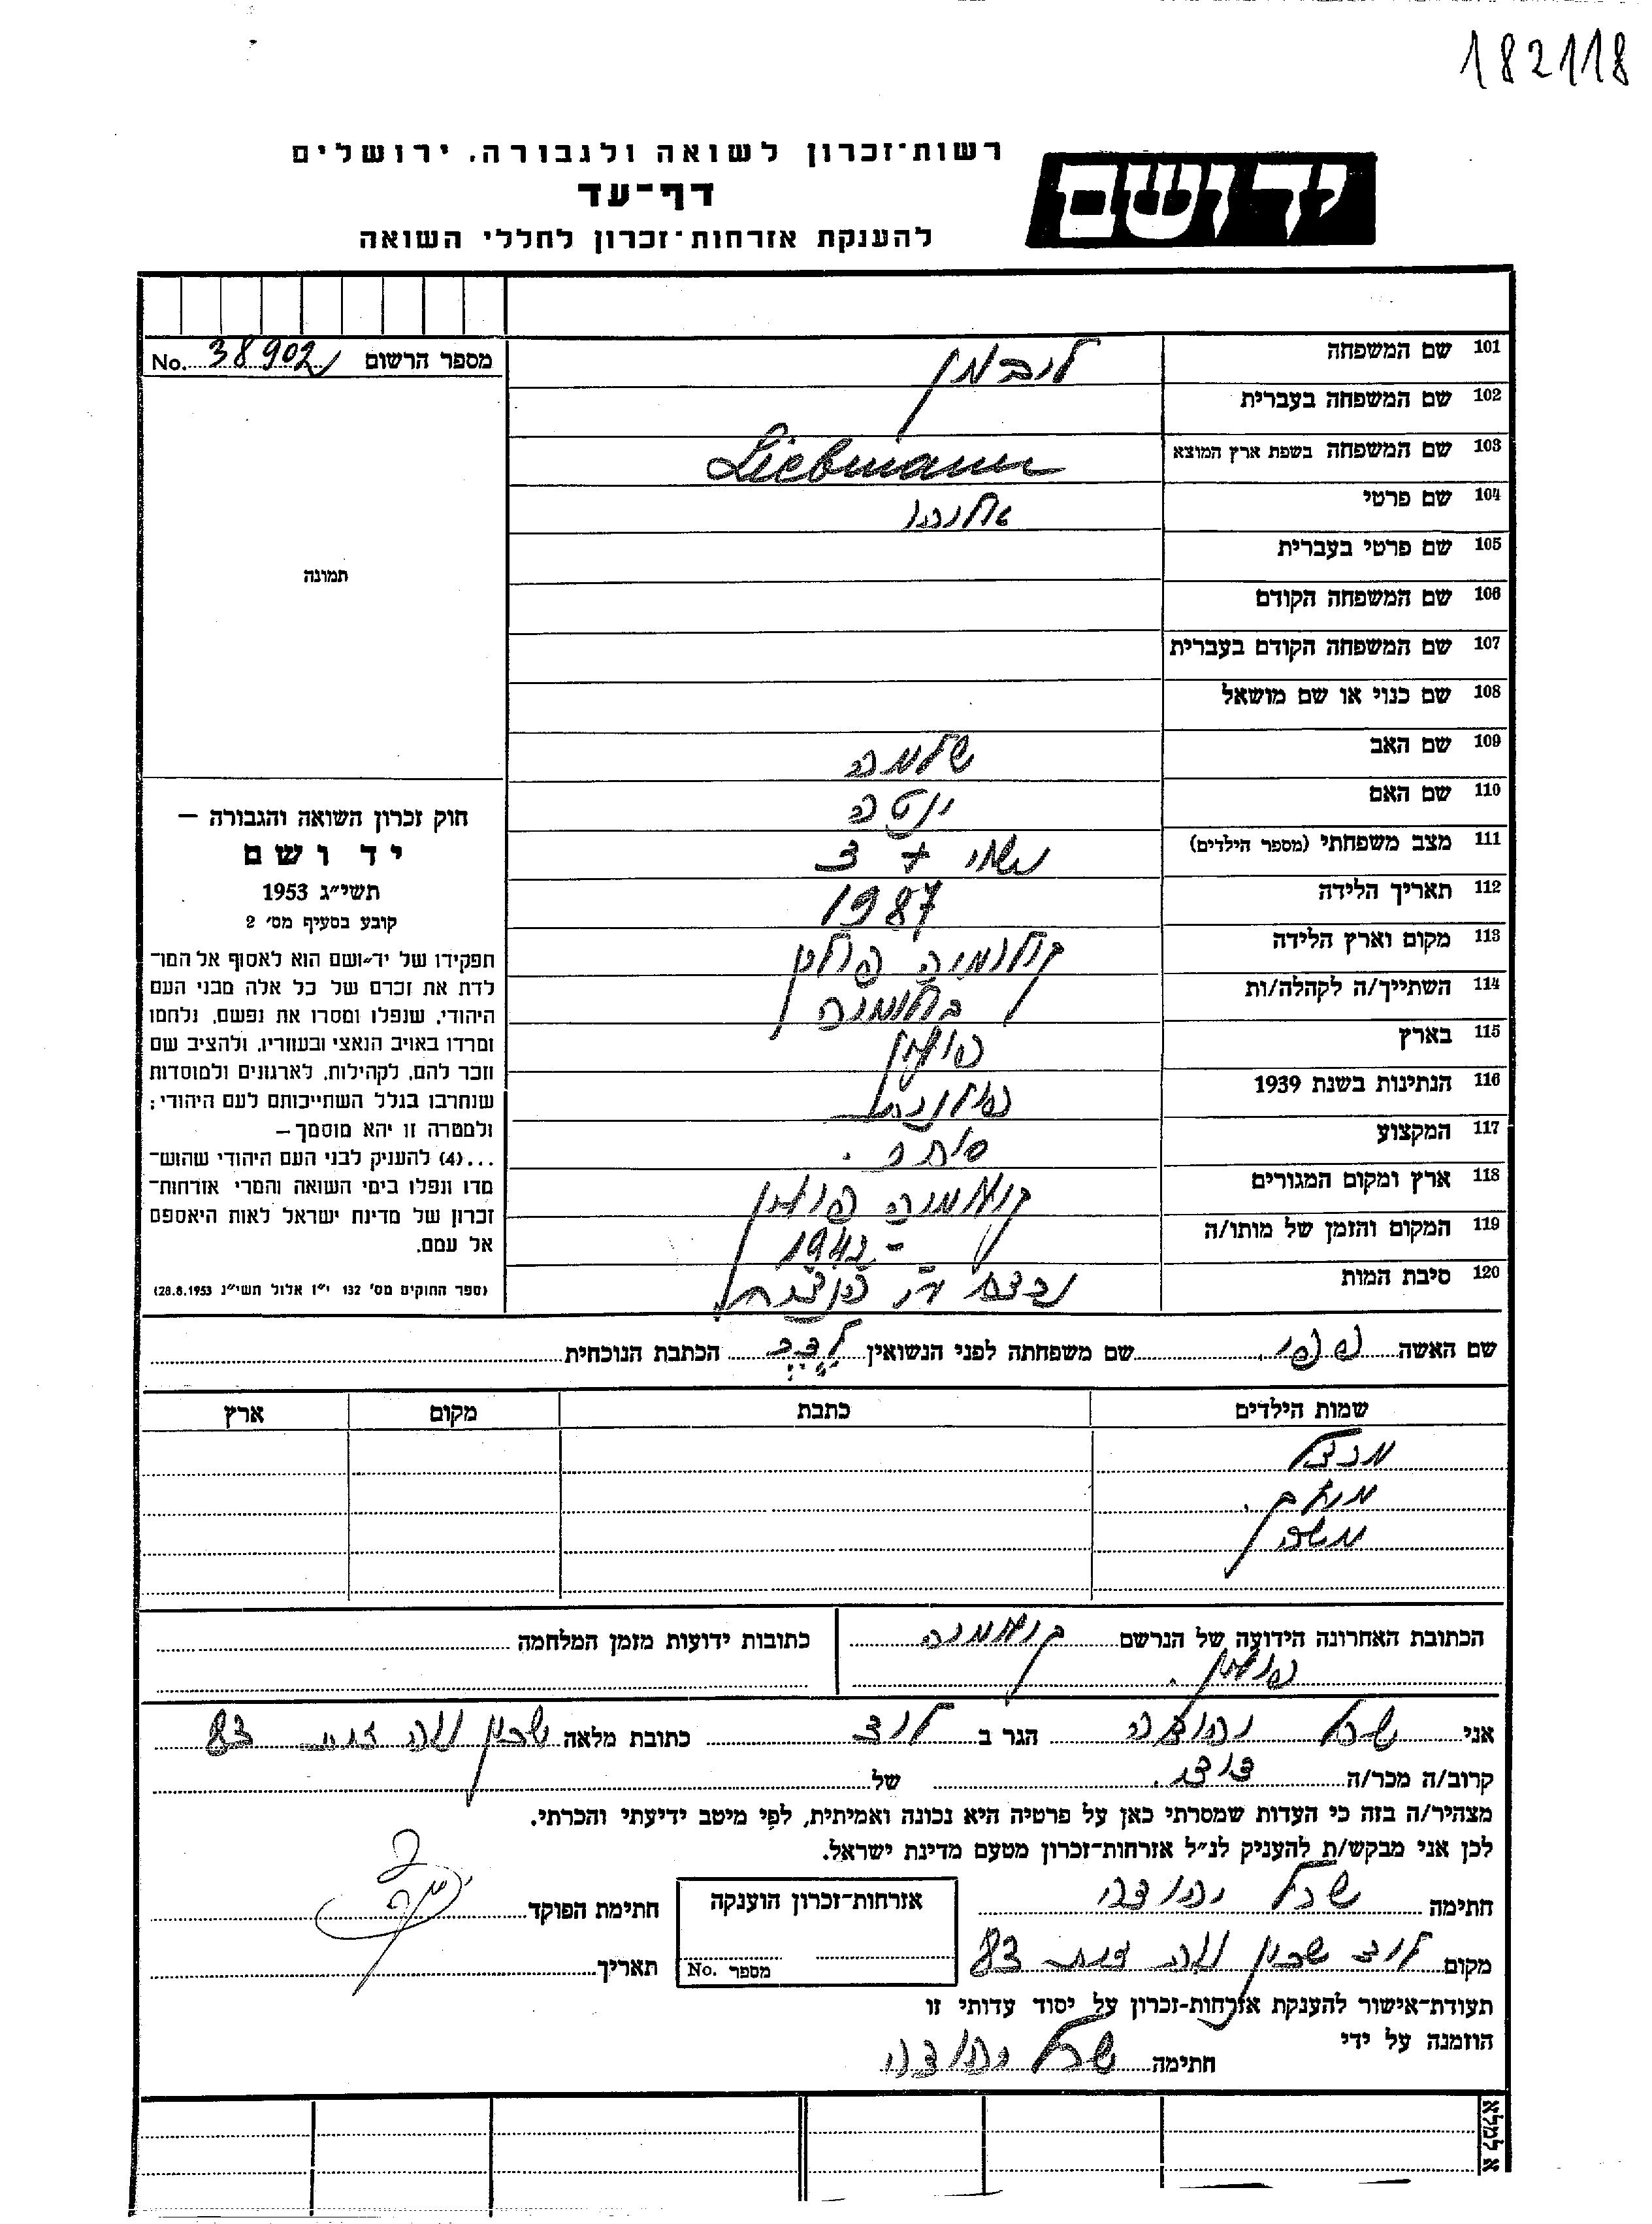 182118
יד ושם
רשות־זכרון לשואה ולגבורה, ירושלים
דף־עד
להענקת אזרחות־זכרון לחללי השואה
מספר הרשום No. 38902
תמונה
101 שם המשפחה ליבמן
102 שם המשפחה בעברית
103 שם המשפחה בשפת ארץ המוצא Liebmann
104 שם פרטי אליהו
105 שם פרטי בעברית
106 שם המשפחה הקודם
107 שם המשפחה הקודם בעברית
108 שם כנוי או שם מושאל
109 שם האב שלמה
110 שם האם יוטה
111 מצב משפחתי (מספר הילדים) נשוי + 3
112 תאריך הלידה 1987
113 מקום וארץ הלידה קולומיה פולין
114 השתייך/ה לקהלה/ות בולומיה
115 בארץ פולין
116 הנתינות בשנת 1939 פולונית
117 המקצוע סוחר.
118 ארץ ומקום המגורים קולומיה פולין
119 המקום והזמן של מותו/ה 1942 -
120 סיבת המות נרצח ע"י
חוק זכרון השואה והגבורה —
יד ושם
תשי״ג 1953
קובע בסעיף מס׳ 2
תפקידו של יד־ושם הוא לאסוף אל המו־
לדת את זכרם של כל אלה מבני העם
היהודי, שנפלו ומסרו את נפשם, נלחמו
ומרדו באויב הנאצי ובעוזריו, ולהציב שם
וזכר להם, לקהילות, לארגונים ולמוסדות
שנחרבו בגלל השתייכותם לעם היהודי:
ולמטרה זו יהא מוסמך—
...(4) להעניק לבני העם היהודי שהוש־
מדו ונפלו בימי השואה והמרי אזרחות־
זכרון של מדינת ישראל לאות היאספם
אל עמם.
(ספר החוקים מס׳ 132 י״ז אלול תשי״ג 28.8.1953)
שם האשה פפי. שם משפחתה לפני הנשואין הכתבת הנוכחית
שמות הילדים כתבת מקום ארץ
מנדל
משה
הכתובת האחרונה הידועה של הנרשם קולומיה כתובות ידועות מזמן המלחמה
פולין.
אני שכל יהודה הגר ב לוד כתובת מלאה שכון נוה זית 83
קרוב/ה מכר/ה דוד. של
מצהיר/ה בזה כי העדות שמסרתי כאן על פרטיה היא נכונה ואמיתית, לפי מיטב ידיעתי והכרתי.
לכן אני מבקש/ת להעניק לנ״ל אזרחות־זכרון מטעם מדינת ישראל.
חתימה שכל יהודה אזרחות־זכרון הוענקה חתימת הפוקד
מקום לוד שכון נוה זית 83 מספר No. תאריך
תעודת־אישור להענקת אזרחות-זכרון על יסוד עדותי זו
הוזמנה על ידי חתימה שכל יהודה